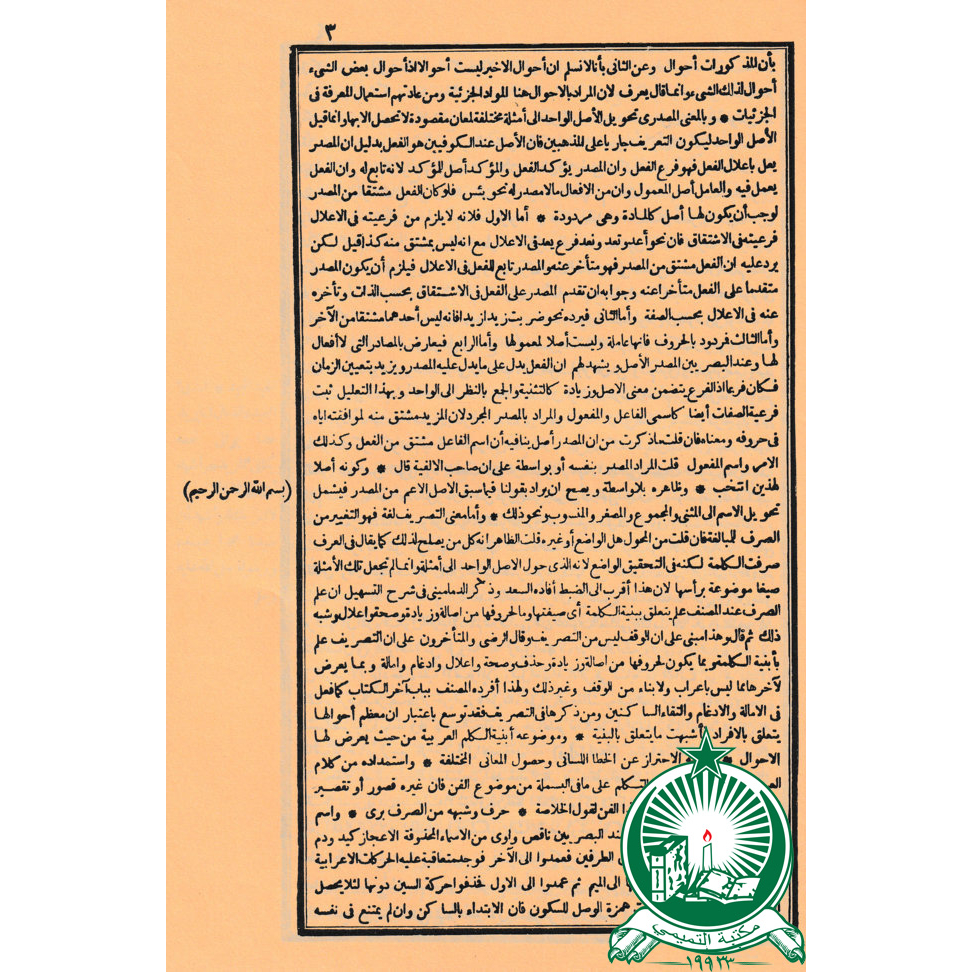 ٣
بأن المذكورات أحوال وعن الثانى بأنا لانسلم ان أحوال الاخير ليست أحوالا اذ أحوال بعض الشىء
أحوال لذلك الشىء وانما قال يعرف لان المراد بالاحوال هنا المواد الجزئية ومن عادتهم استعمال المعرفة فى
الجزئيات * و بالمعنى المصدرى تحويل الأصل الواحد الى أمثلة مختلفة لمعان مقصودة لا تحصل الا بها وانما قيل
الأصل الواحد ليكون التعريف جار يا على المذهبين فان الأصل عند الكوفيين هو الفعل بدليل ان المصدر
يعل باعلال الفعل فهو فرع الفعل وان المصدر يؤكد الفعل والمؤكد أصل للمؤكد لانه تابع له وان الفعل
يعمل فيه والعامل أصل المعمول وان من الافعال مالامصدر له نحو بئس فلو كان الفعل مشتقا من المصدر
لوجب أن يكون لها أصل كالمادة وهى مردودة * أما الاول فلانه لا يلزم من فرعيته فى الاعلال
فرعيته فى الاشتقاق فان نحو أعد وتعد ونعد فرع يعد فى الاعلال مع انه ليس بمشتق منه كذا قيل لكن
يرد عليه ان الفعل مشتق من المصدر فهو متأخر عنه والمصدر تابع للفعل فى الاعلال فيلزم أن يكون المصدر
متقدما على الفعل متأخرا عنه وجوابه ان تقدم المصدر على الفعل فى الاشتقاق بحسب الذات وتأخره
عنه فى الاعلال بحسب الصفة وأما الثانى فيرده نحو ضربت زيدا زيدا فانه ليس أحدهما مشتقا من الآخر
وأما الثالث فردود بالحروف فانها عاملة وليست أصلا لمعمولها وأما الرابع فيعارض بالمصادر التى لا أفعال
لها وعند البصريين المصدر الأصل ويشهد لهم ان الفعل يدل على مايدل عليه المصدر ويزيد بتعيين الزمان
فكان فرعا اذ الفرع يتضمن معنى الاصل وزيادة كالتثنية والجمع بالنظر الى الواحد وبهذا التعليل ثبت
فرعية الصفات أيضا كاسمى الفاعل والمفعول والمراد بالمصدر المجرد لان المزيد مشتق منه لموافقته اياه
فى حروفه ومعناه فان قلت ماذكرت من ان المصدر أصل ينافيه أن اسم الفاعل مشتق من الفعل وكذلك
الامر واسم المفعول قلت المراد المصدر بنفسه أو بواسطة على ان صاحب الالفية قال * وكونه أصلا
لهذين انتخب * وظاهره بلا واسطة ويصح ان يراد بقولنا فيما سبق الاصل الاعم من المصدر فيشمل
(بسم الله الرحمن الرحيم)
تحويل الاسم الى المثنى والمجموع والمصغر والمنسوب ونحو ذلك * وأما معنى التصريف لغة فهو التغيير من
الصرف للمبالغة فان قلت من المحول هل الواضع أو غيره قلت الظاهر انه كل من يصلح لذلك كما يقال فى العرف
صرفت الكلمة لكنه فى التحقيق الواضع لانه الذى حول الاصل الواحد الى أمثلة وانما لم تجعل تلك الأمثلة
صيغا موضوعة برأسها لان هذا أقرب الى الضبط أفاده السعد وذكر الدمامينى فى شرح التسهيل ان علم
الصرف عند المصنف علم يتعلق ببنية الكلمة أى صيغتها وما لحروفها من اصالة وزيادة وصحة واعلال وشبه
ذلك ثم قال وهذا مبنى على ان الوقف ليس من التصريف وقال الرضى والمتأخرون على ان التصريف علم
بأبنية الكلمة وبما يكون لحروفها من اصالة وزيادة وحذف وصحة واعلال وادغام وامالة وبما يعرض
لآخرها مما ليس باعراب ولا بناء من الوقف وغير ذلك ولهذا أفرده المصنف بباب آخر الكتاب كما فعل
فى الامالة والادغام والتقاء الساكنين ومن ذكرها فى التصريف فقد توسع باعتبار ان معظم أحوالها
يتعلق بالافراد فأشبهت ما يتعلق بالبنية * وموضوعه أبنية الكلم العربية من حيث يعرض لها
الاحوال * الاحتراز عن الخطا اللسانى وحصول المعانى المختلفة * واستمداده من كلام
التكلم على مافى البسملة من موضوع الفن فان غيره قصور أو تقصير
الفن لقول الخلاصة * حرف وشبهه من الصرف برى * واسم
عند البصريين ناقص واوى من الاسماء المحذوفة الاعجاز كيد ودم
الطرفين فعمدوا الى الآخر فوجد متعاقبة عليه الحركات الاعرابية
الى الميم ثم عمدوا الى الاول فحذفوا حركة السين دونها لئلا يحصل
همزة الوصل للسكون فان الابتداء بالساكن وان لم يمتنع فى نفسه
مكتبة التميمي
١٩٩٣٣